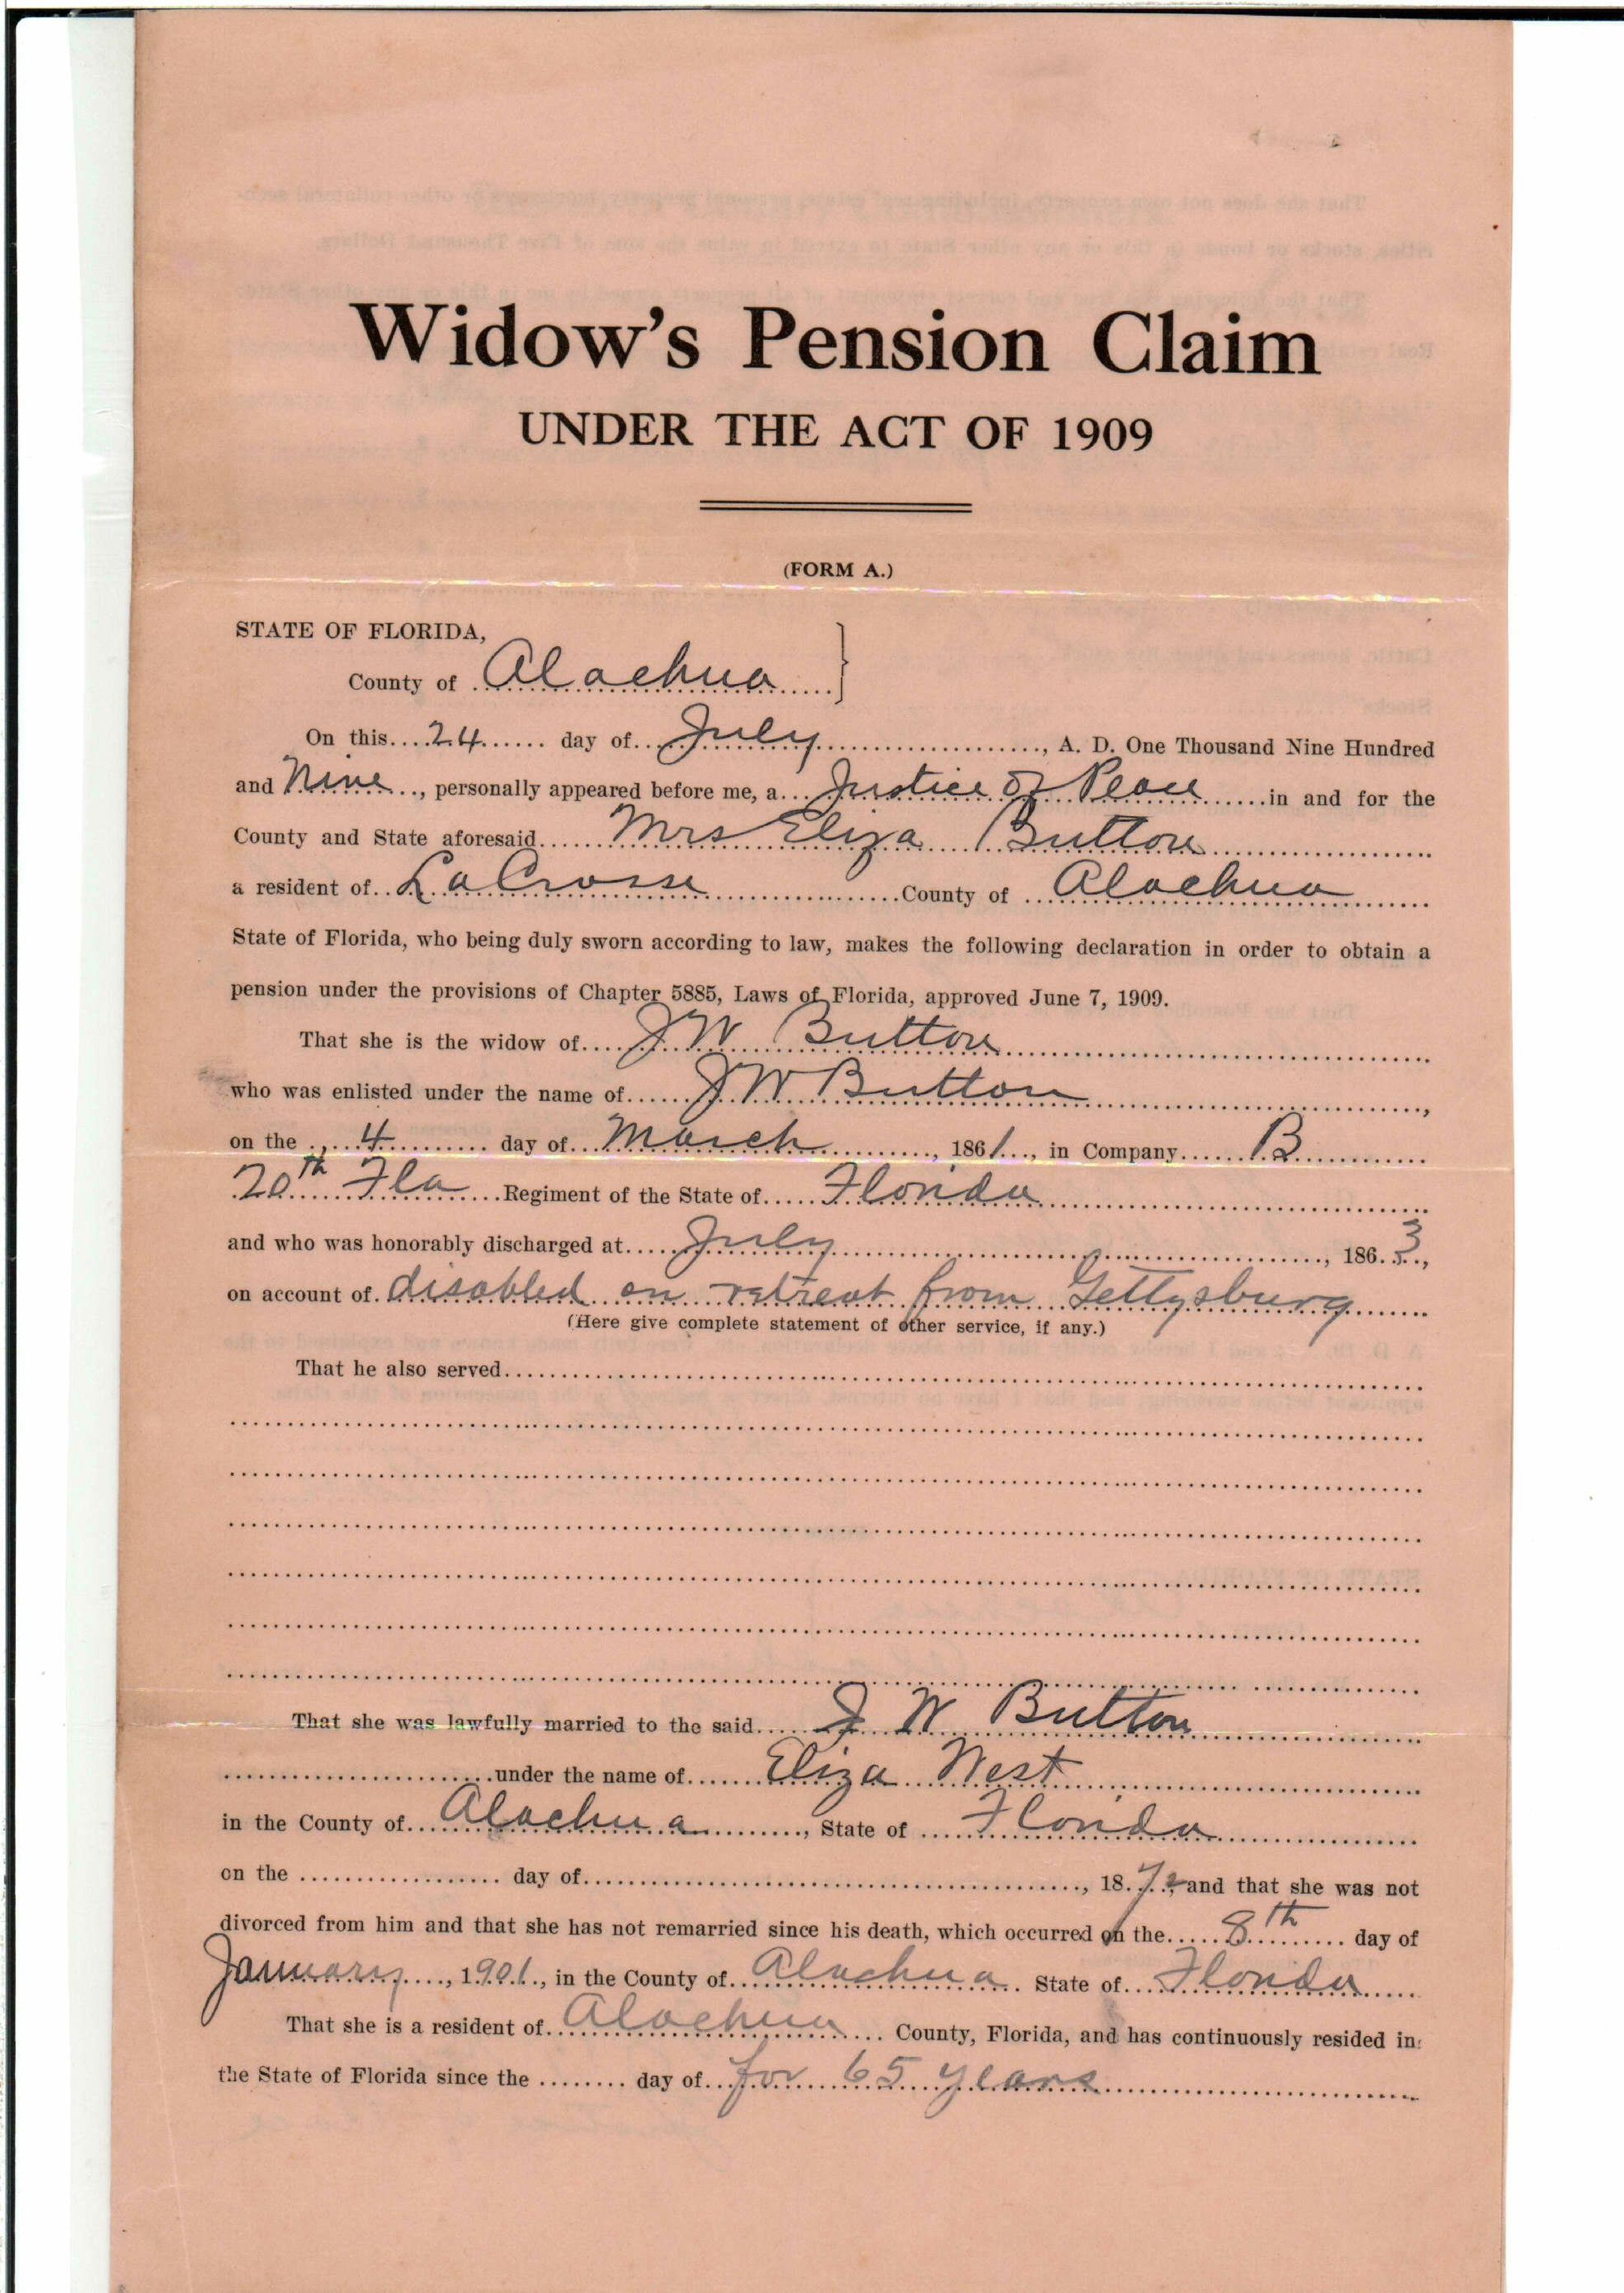 Widow's Pension Claim
UNDER THE ACT OF 1909
(FORM A.)
STATE OF FLORIDA,
County of Alachua
On this 24 day of July, A. D. One Thousand Nine Hundred
and Nine, personally appeared before me, a Justice of Peace in and for the
County and State aforesaid Mrs Eliza Button
a resident of LaCrosse County of Alachua
State of Florida, who being duly sworn according to law, makes the following declaration in order to obtain a
pension under the provisions of Chapter 5885, Laws of Florida, approved June 7, 1909.
That she is the widow of J W Button
who was enlisted under the name of J W Button,
on the 4 day of March, 1861, in Company B
20th Fla Regiment of the State of Florida
and who was honorably discharged at July, 1863,
on account of disabled on retreat from Gettysburg
(Here give complete statement of other service, if any.)
That he also served
That she was lawfully married to the said J W Button
under the name of Eliza West
in the County of Alachua, State of Florida
on the day of, 187 and that she was not
divorced from him and that she has not remarried since his death, which occurred on the 8th day of
January, 1901, in the County of Alachua State of Florida
That she is a resident of Alachua County, Florida, and has continuously resided in
the State of Florida since the day of for 65 years